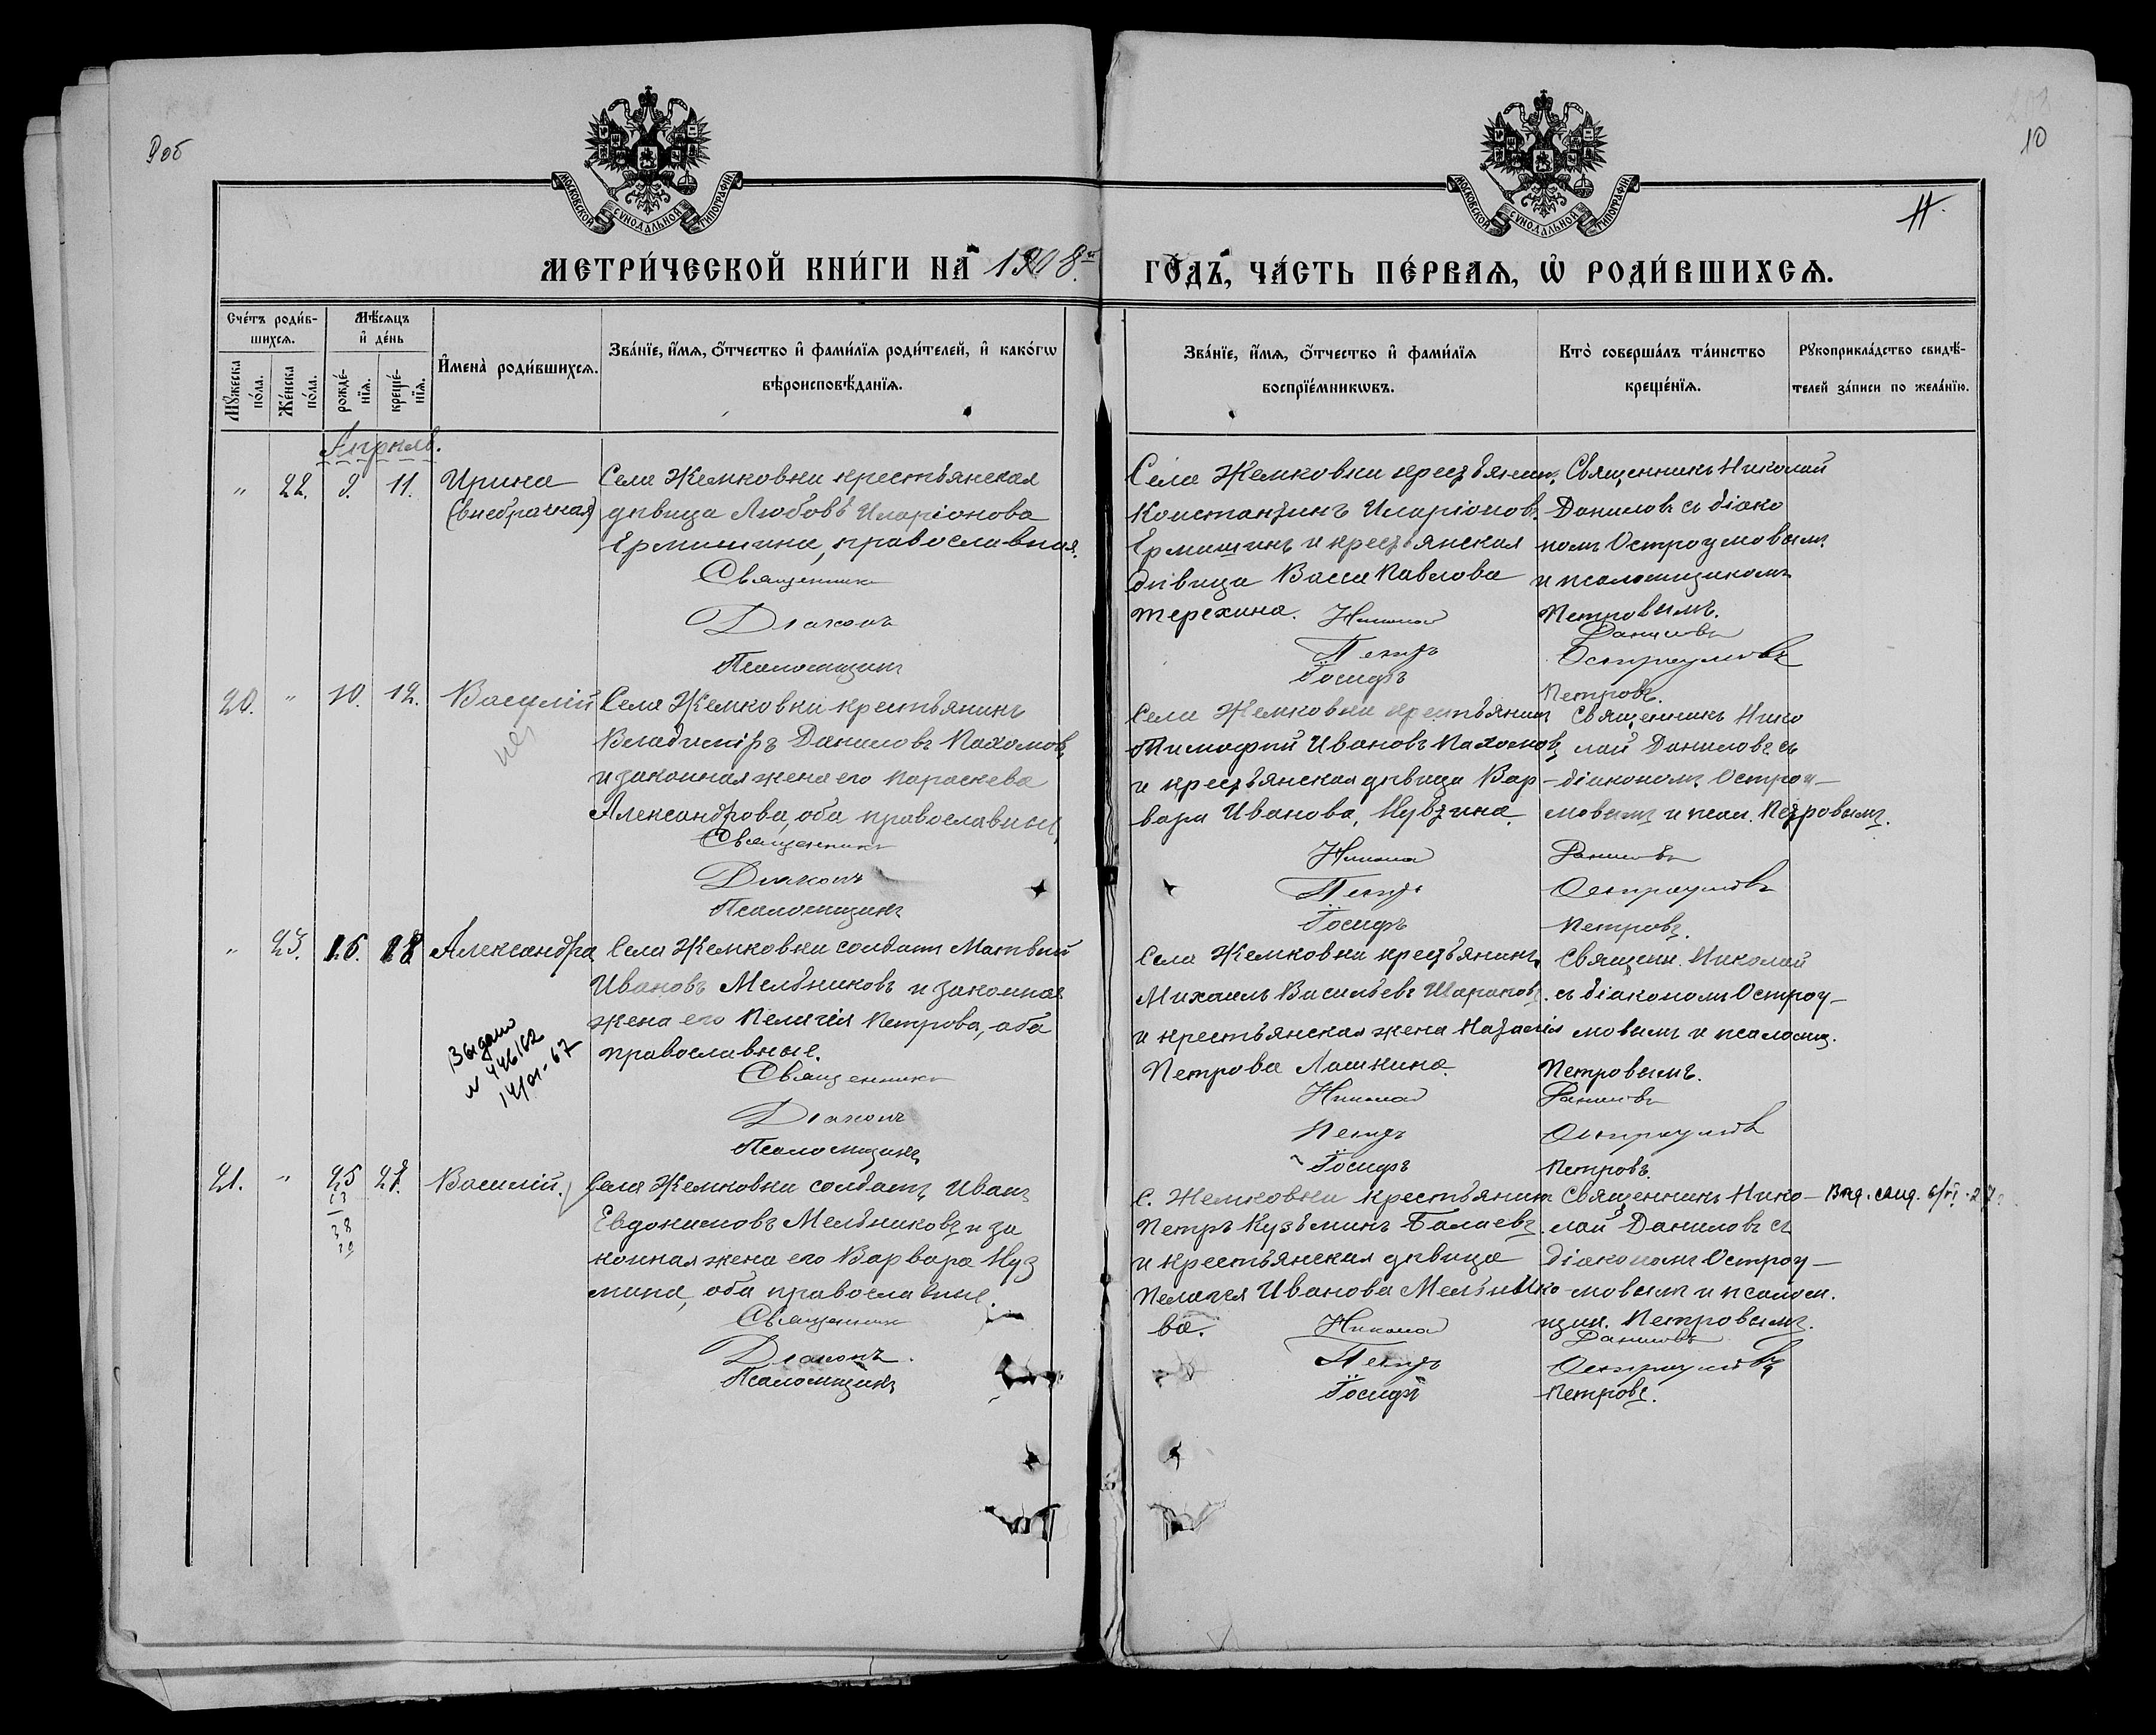 9 об
10
11.
МОСКОВСКОЙ СѴНОДАЛЬНОЙ ТИПОГРАФІИ
МОСКОВСКОЙ СѴНОДАЛЬНОЙ ТИПОГРАФІИ
МЕТРИ́ЧЕСКОЙ КНИ́ГИ НА 1908 го̂
ГОДЪ, ЧА́СТЬ ПЕ́РВАѦ, Ѡ҆ РОДИ́ВШИХСѦ.
Сче́тъ роди́в-
шихсѧ.
Мꙋ́жеска по́ла.
Же́нска по́ла.
Мѣ́сѧцъ
и҆ де́нь
рожде́-нїѧ.
креще́-нїѧ.
И҆мена̀ роди́вшихсѧ.
Зва́нїе, и҆́мѧ, ѻ҆́тчество и҆ фами́лїѧ роди́телей, и҆ како́гѡ
вѣроисповѣ́данїѧ.
Зва́нїе, и҆́мѧ, ѻ҆́тчество и҆ фами́лїѧ
воспрїе́мникѡвъ.
Кто̀ соверша́лъ та́инство
креще́нїѧ.
Рꙋкоприкла́дство свидѣ́-
телей за́писи по жела́нїю.
Апрель.
" 22. 9. 11. Ирина
(внебрачная)
Села Жемковки крестьянская
дѣвица Любовь Иларіонова
Ермишина, православная.
Священникъ
Діаконъ
Псаломщикъ
Села Жемковки крестьянинъ
Константинъ Иларіоновъ
Ермишинъ и крестьянская
дѣвица Васса Павлова
Терехина. Николай
Петръ
Іосифъ
Священникъ Николай
Даниловъ съ діако
номъ Остроумовымъ
и псаломщикомъ
Петровымъ.
Даниловъ
Остроумовъ
Петровъ.
20. " 10. 12. Василій
Села Жемковки крестьянинъ
Владиміръ Даниловъ Пахомовъ
и законная жена его Параскева
Александрова, оба православные,
Священникъ
Діаконъ
Псаломщикъ
Села Жемковки крестьянинъ
Тимофей Ивановъ Пахомовъ
и крестьянская дѣвица Вар-
вара Иванова,
Николай
Петръ
Іосифъ
Священникъ Нико
лай Даниловъ съ
діакономъ Остроу-
мовымъ и псал. Петровымъ.
Даниловъ
Остроумовъ
Петровъ.
" 23. 16. 18 Александра
Выдано
14/01-67
Села Жемковки солдатъ Матвей
Ивановъ Мельниковъ и законная
жена его Пелагія Петрова, оба
православные.
Священникъ
Діаконъ
Псаломщикъ
Села Жемковки крестьянинъ
Михаилъ Васильевъ Шараповъ
и крестьянская жена Наталія
Петрова Лашкина.
Николай
Петръ
Іосифъ
Священ. Николай
съ діакономъ Остроу-
мовымъ и псаломщ.
Петровымъ.
Даниловъ
Остроумовъ
Петровъ.
21. " 25 27. Василій.
13
38
Села Жемковки солдатъ Иванъ
Евдокимовъ Мельниковъ и за
конная жена его Варвара Куз
мина, оба православные.
Священникъ
Діаконъ.
Псаломщикъ
С. Жемковки крестьянинъ
Петръ Кузьминъ Балаевъ
и крестьянская дѣвица
Пелагея Иванова Мельнико
ва. Николай
Петръ
Іосифъ
Священникъ Нико-
лай Даниловъ съ
діакономъ Остроу-
мовымъ и псалом.
щик. Петровымъ.
Даниловъ
Остроумовъ
Петровъ.